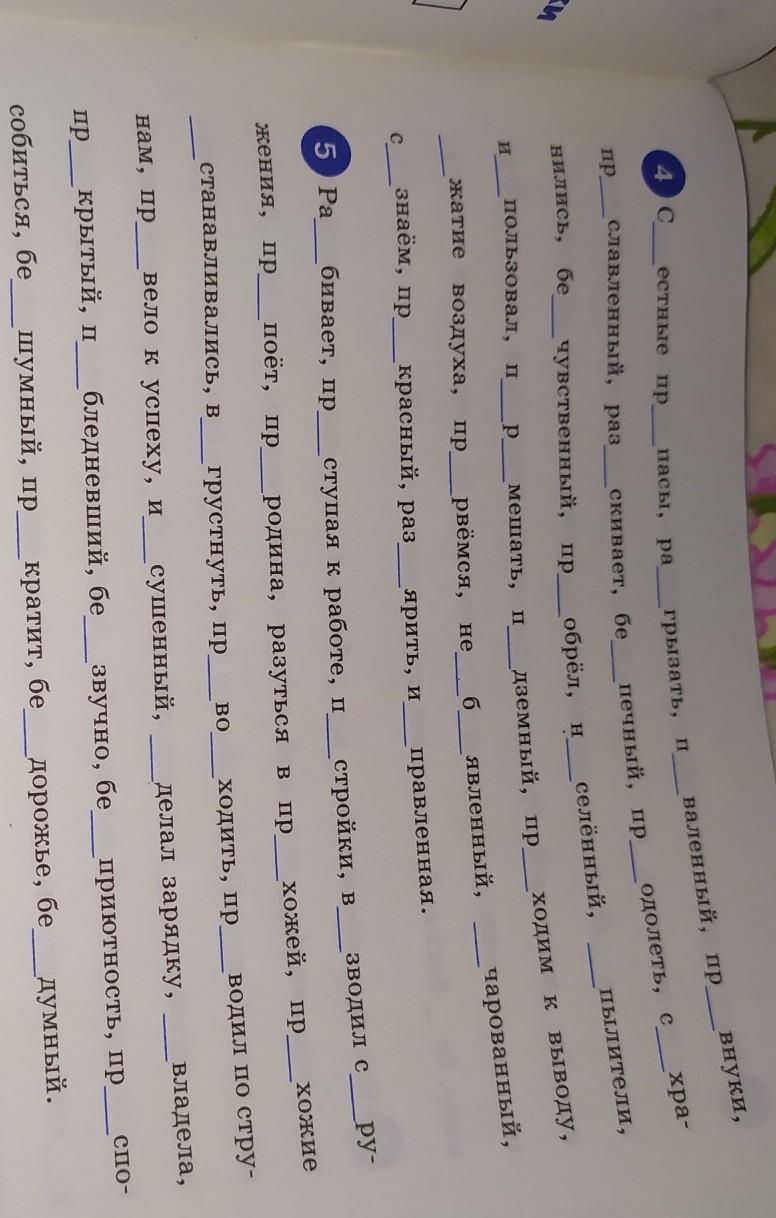 ки
4 С__естные пр__пасы, ра__грызать, п__валенный, пр__внуки,
пр__славленный, раз__скивает, бе__печный, пр__одолеть, с__хра-
нились, бе__чувственный, пр__обрёл, н__селённый, __пылители,
и__пользовал, п__р__мешать, п__дземный, пр__ходим к выводу,
__жатие воздуха, пр__рвёмся, не__б__явленный, __чарованный,
с__знаём, пр__красный, раз__ярить, и__правленная.
5 Ра__бивает, пр__ступая к работе, п__стройки, в__зводил с__ру-
жения, пр__поёт, пр__родина, разуться в пр__хожей, пр__хожие
__станавливались, в__грустнуть, пр__во__ходить, пр__водил по стру-
нам, пр__вело к успеху, и__сушенный, __делал зарядку, __владела,
пр__крытый, п__бледневший, бе__звучно, бе__приютность, пр__спо-
собиться, бе__шумный, пр__кратит, бе__дорожье, бе__думный.